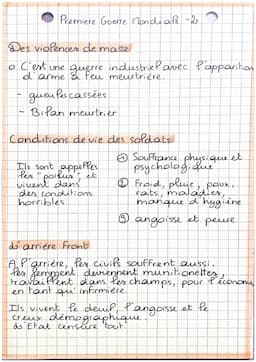 Première Guerre Mondiale -2
Des violences de masse
o C'est une guerre industriel avec l'apparition
d'arme à feu meurtrière.
- gueules cassées
- Bilan meurtrier
Conditions de vie des soldats
Ils sont appellés
les "poilus" et
vivent dans
des conditions
horribles
① Souffrance physique et
psychologique
② Froid, pluie, poux,
rats, maladies,
manque d'hygiène
③ angoisse et peure
à l'arrière Front
A l'arrière, les civils souffrent aussi.
les femmes deviennent munitionettes,
travaillent dans les champs, pour l'économie,
en tant qu'infirmière.
Ils vivent le deuil, l'angoisse et le
creux démographique.
L'Etat censure tout.